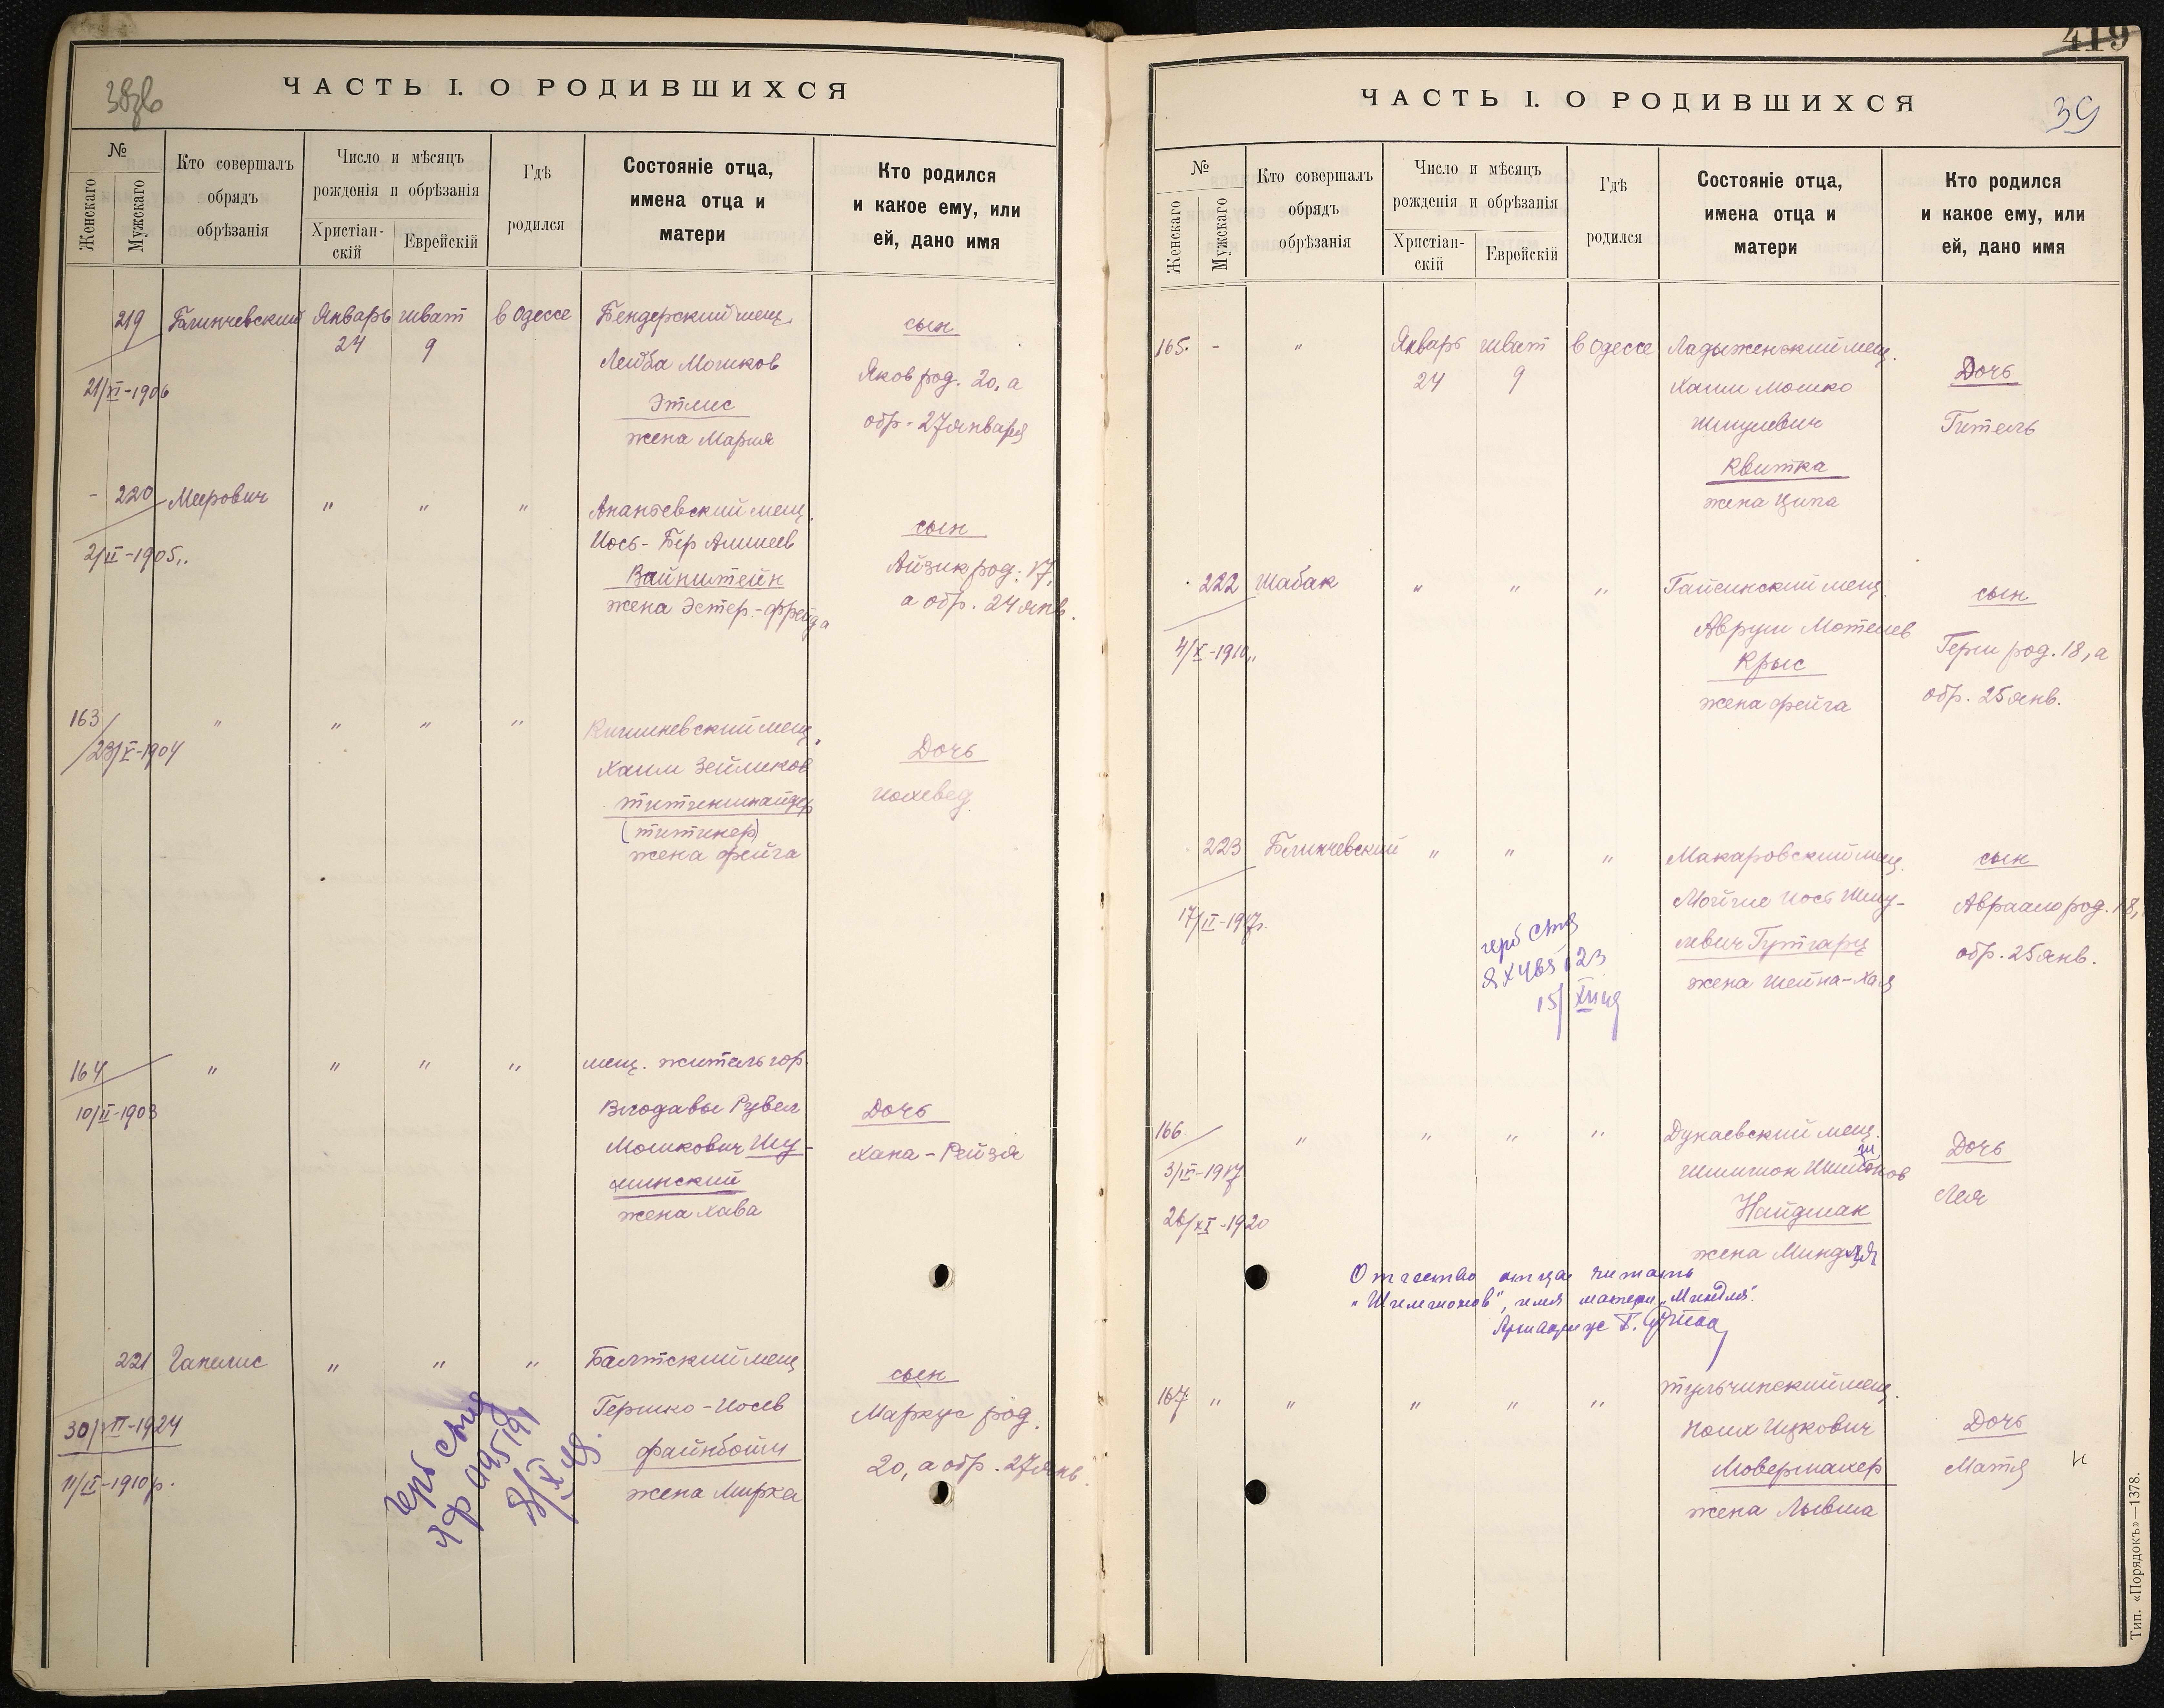 38об
ЧАСТЬ I. О РОДИВШИХСЯ
№
Женскаго
Мужскаго
Кто совершалъ
обрядъ
обрѣзанія
Число и мѣсяцъ
рожденія и обрѣзанія
Христіан-
скій
Еврейскій
Гдѣ
родился
Состояніе отца,
имена отца и
матери
Кто родился
и какое ему, или
ей, дано имя
219 Блинчевский Январь 24 шват 9 в Одессе
21/XI-1906
Бендерский мещ.
Лейба Мошков
Этлис
жена Мария
сын
Яков род. 20, а
обр. 27 января
- 220 Меерович " " "
2/II-1905
Ананьевский мещ.
Иось-Бер
Вайнштейн
жена Эстер-Фрейда
сын
Айзик род. 17,
а обр. 24 янв.
163 " " " "
23/X-1904
Кишиневский мещ.
Хаим Зейликов
(титинер)
жена Фейга
Дочь
Иохевед
164 " " " "
10/II-1903
мещ. житель гор.
Влодавы Рувел
Мошкович Шу-
минский
жена Хава
Дочь
Хана-Рейзя
221 Гапелис " " "
30/VI-1924
11/II-1910 р.
Балтский мещ
Гершко-Иосев
Файнбойм
жена Мирка
сын
Маркус род.
20, а обр. 27 янв.
герб сбид
419
39
ЧАСТЬ I. О РОДИВШИХСЯ
№
Женскаго
Мужскаго
Кто совершалъ
обрядъ
обрѣзанія
Число и мѣсяцъ
рожденія и обрѣзанія
Христіан-
скій
Еврейскій
Гдѣ
родился
Состояніе отца,
имена отца и
матери
Кто родился
и какое ему, или
ей, дано имя
165. - " Январь 24 шват 9 в Одессе
Ладыженский мещ.
Хаим Мошко
Шмулевич
Квитка
жена Ципа
Дочь
Гитель
222 Шабак " " "
4/X-1910
Гайсинский мещ.
Аврум Мотелев
Крыс
жена Фейга
сын
Герш род. 18, а
обр. 25 янв.
223 Блинчевский " " "
17/II-1917
Макаровский мещ.
Мойше Иось Шму-
левич Гутгарц
жена Шейна-Хая
сын
Авраам род. 18,
обр. 25 янв.
166. " " " "
3/VI-1917
26/XI-1920
Дунаевский мещ.
Шимшон
Найдмак
жена Миндля
Дочь
Лея
Отчество отца читать
"Шимшонов", имя матери "Миндля".
167. " " " " " "
Тульчинский мещ.
Иоил Ицкович
Мовермахер
жена Лывша
Дочь
Матя
Тип. «Порядокъ»—1378.